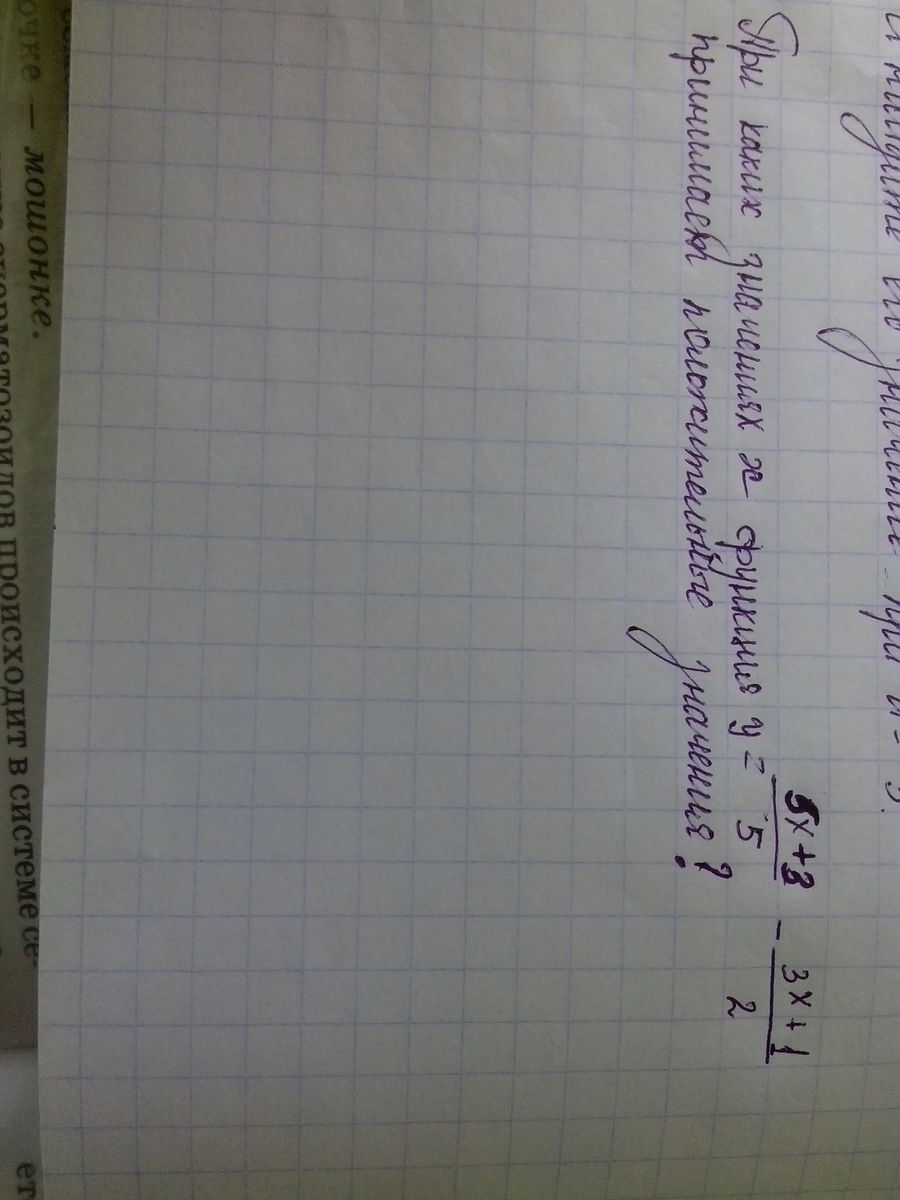 его значение при
При каких значениях x функция y = 5x+3/5 - 3x+1/2
принимает положительные значения?
очке — мошонке.
происходит в системе се-
ет